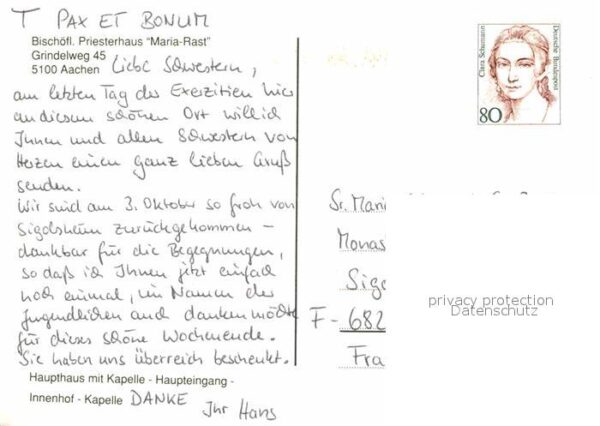 T PAX ET BONUM
Bischöfl. Priesterhaus "Maria-Rast"
Grindelweg 45
5100 Aachen
Liebe Schwestern,
am letzten Tag der Exerzitien hier
an diesem schönen Ort will ich
Ihnen und allen Schwestern von
Herzen einen ganz lieben Gruß
senden.
Wir sind am 3. Oktober so froh von
Sigolsheim zurückgekommen –
dankbar für die Begegnungen,
so daß ich Ihnen jetzt einfach
noch einmal, im Namen der
Jugendlichen auch danken möchte
für dieses schöne Wochenende.
Sie haben uns überreich beschenkt.
Haupthaus mit Kapelle - Haupteingang -
Innenhof - Kapelle
DANKE
Ihr Hans
Clara Schumann
Deutsche Bundespost
80
Sr. Mari
Monas
Sigo
F-682
Fra
privacy protection
Datenschutz